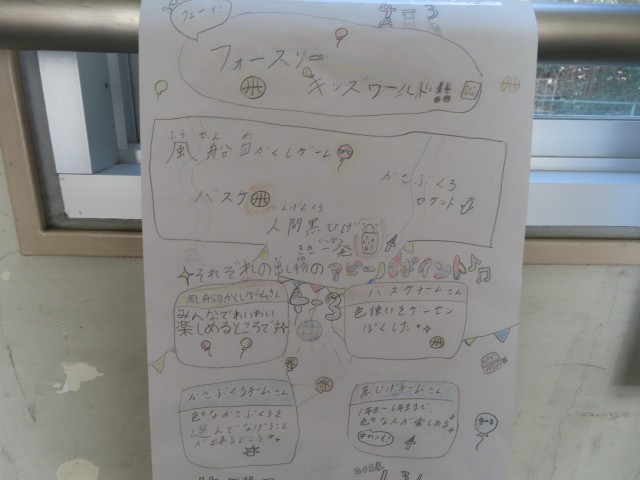 フォースリー
キッズワールド!!
ふうせん
風船目かくしゲーム
バスケ
かさぶくろ
ロケット
人間黒ひげ
一発
それぞれの出し物のアピールポイント♪♫
4-3
風船目かくしゲームさん
みんなでわいわい
楽しめるところです
バスケチームさん
色使いをゲーセン
ぽくした
かさぶくろチームさん
色々なかさぶくろを
選んでなげること
が出来るところ
黒ひげチームさん
1年生〜6年生まで、
色々な人が楽しめる